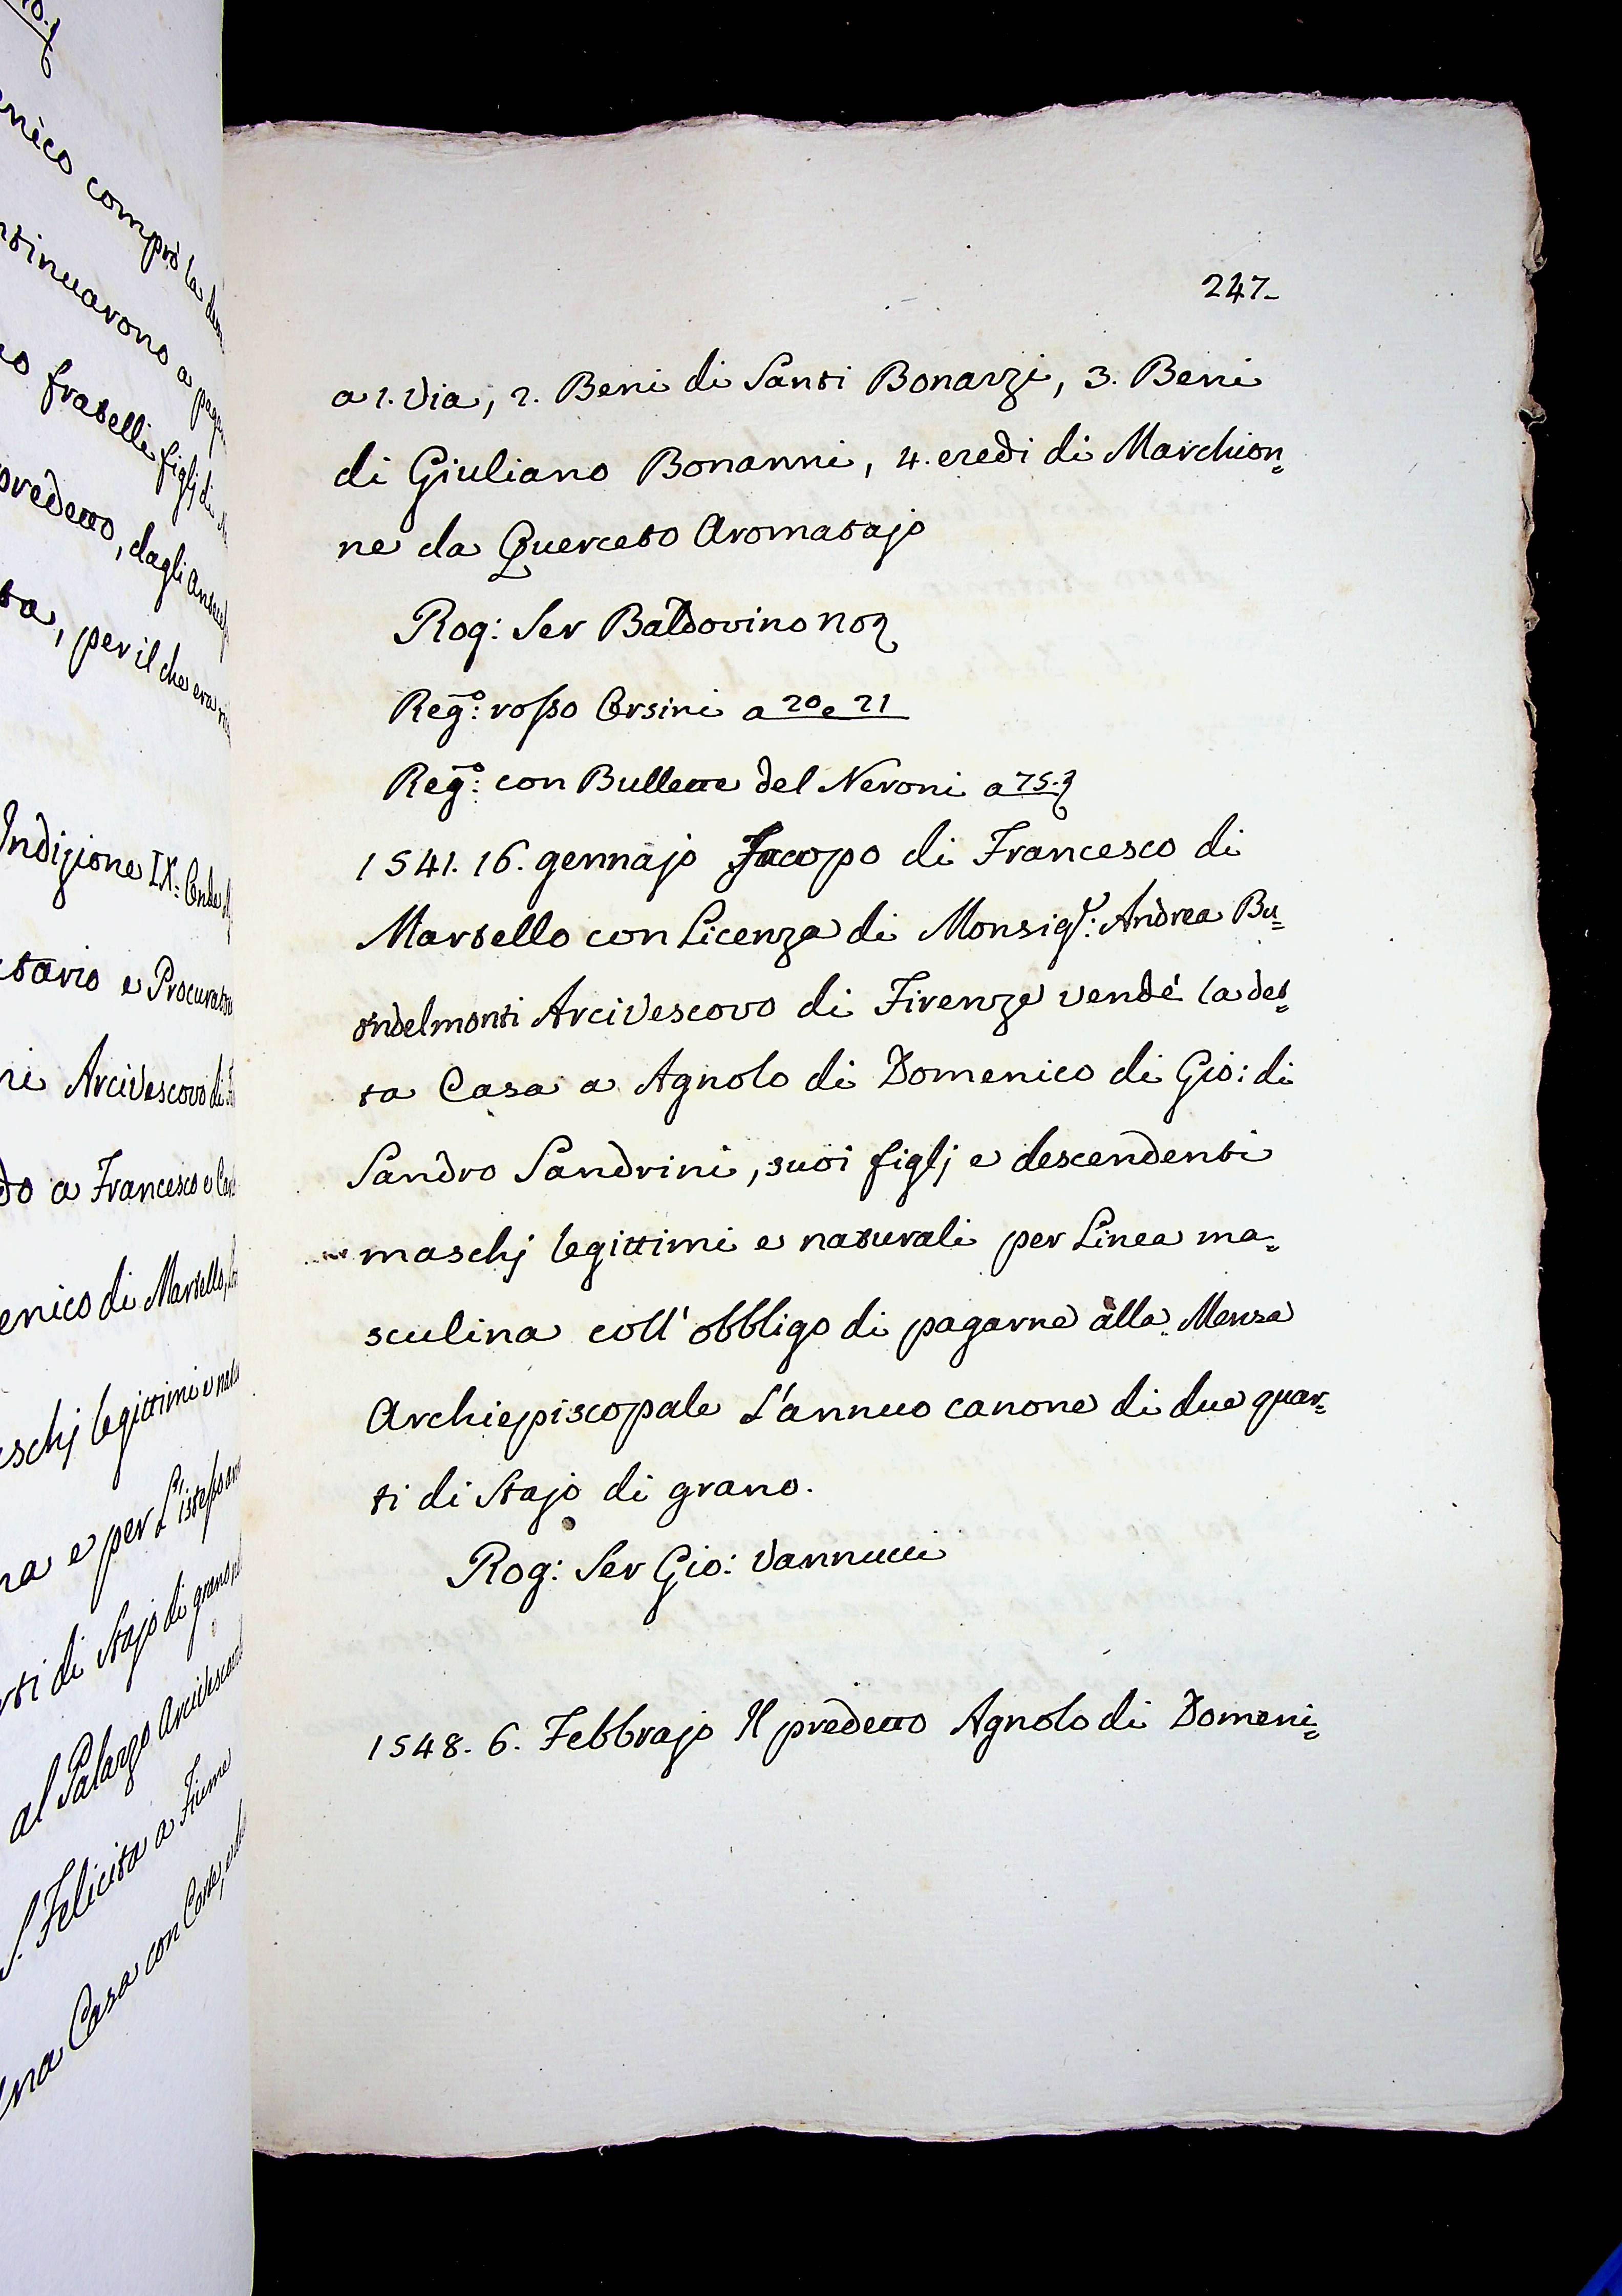 247.
a 1. Via, 2. Beni di Santi Bonarzi, 3. Beni
di Giuliano Bonanni, 4. eredi di Marchion=
ne da Querceto Aromatajo
Rog: Ser Baldovino
Reg.º rosso Orsini a 20 e 21
Reg.º con Bullette del Neroni a 75.
1541. 16. gennajo Jacopo di Francesco di
Martello con Licenza di Monsig.r: Andrea Bu=
ondelmonti Arcivescovo di Firenze vendé la det=
ta Casa a Agnolo di Domenico di Gio: di
Sandro Sandrini, suoi figlj e descendenti
maschj legittimi e naturali per Linea ma=
sculina coll' obbligo di pagarne alla Mensa
Archiepiscopale L'annuo canone di due quar=
ti di Stajo di grano.
Rog: Ser Gio: Vannucci
1548. 6. Febbrajo Il predetto Agnolo di Domeni=
enico comprò la
tinuarono a
fratelli figlj di
predetto, dagli
ta, per il che era
Indizione IX:
tario e Procurato
ni Arcivescovo di
do a Francesco e
enico di Martello,
schj legittimi e
na e per L'istesso
rti di Stajo di grano
al Palazzo Arcivescov
S. Felicita a Fiume
una Casa con Corte,